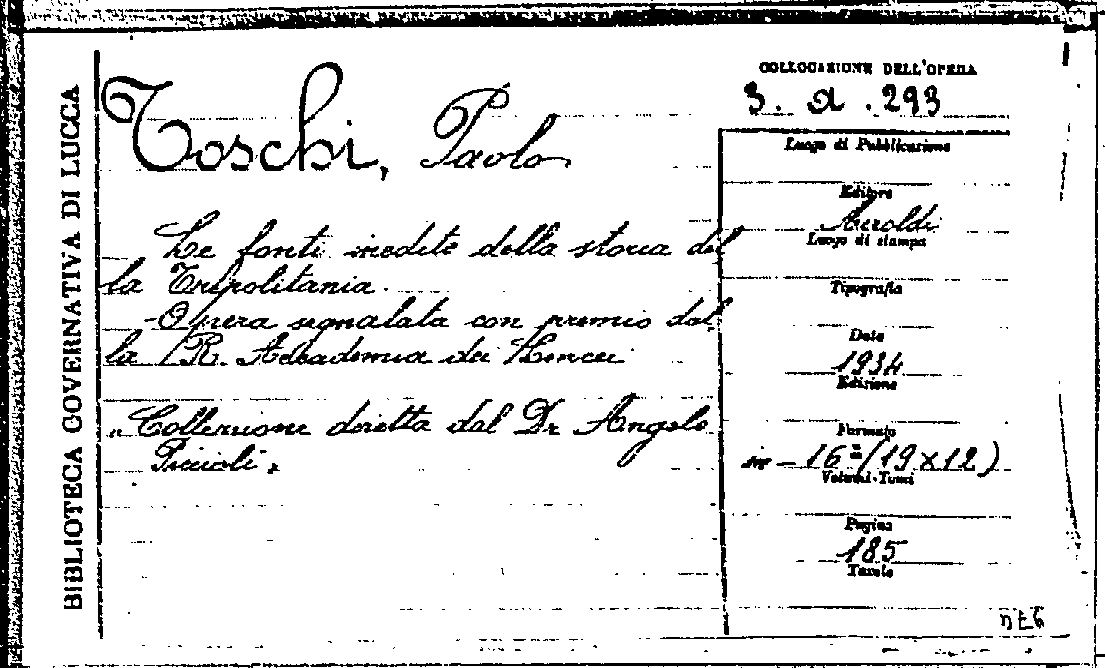 BIBLIOTECA GOVERNATIVA DI LUCCA
COLLOCAZIONE DELL'OPERA
3. a. 293
Toschi, Paolo
Le fonti inedite della storia del
la Tripolitania.
Opera segnalata con premio dal
la R. Accademia dei Lincei
"Collezione diretta dal Dr Angelo
Piccioli"
Luogo di Pubblicazione
Editore
Airoldi
Luogo di stampa
Tipografia
Data
1934
Edizione
Formato
in-16°/(19x12)
Volumi-Tomi
Pagine
185
Tavole